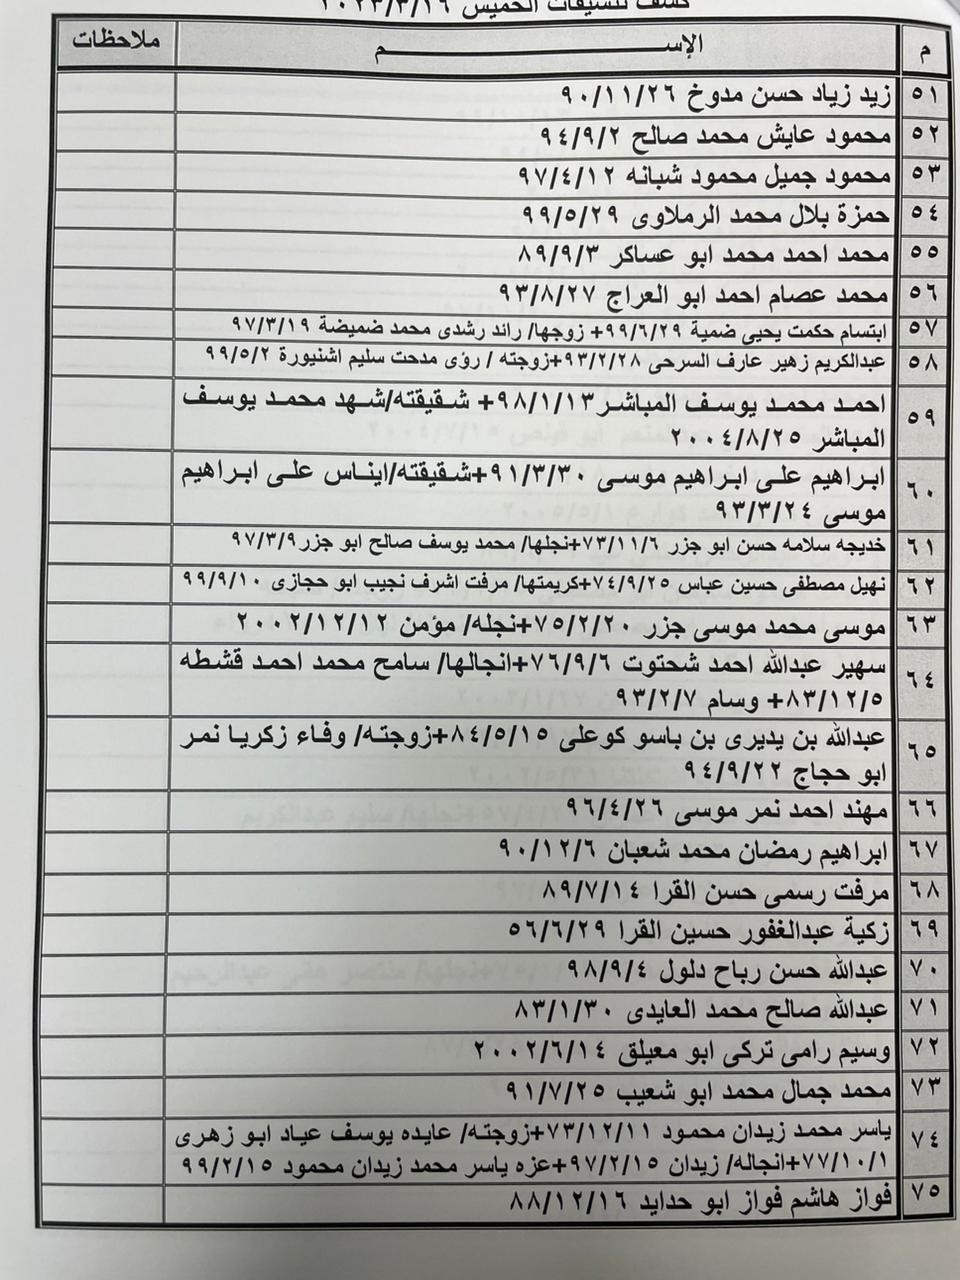 كشف تنسيقات الخميس ٢٠٢٣/٣/١٦
م الإســـــــم ملاحظات
٥١ زيد زياد حسن مدوخ ٩٠/١١/٢٦
٥٢ محمود عايش محمد صالح ٩٤/٩/٢
٥٣ محمود جميل محمود شبانه ٩٧/٤/١٢
٥٤ حمزة بلال محمد الرملاوى ٩٩/٥/٢٩
٥٥ محمد احمد محمد ابو عساكر ٨٩/٩/٣
٥٦ محمد عصام احمد ابو العراج ٩٣/٨/٢٧
٥٧ ابتسام حكمت يحيى ضمية ٩٩/٦/٢٩+ زوجها/ رائد رشدى محمد ضميضة ٩٧/٣/١٩
٥٨ عبدالكريم زهير عارف السرحى ٩٣/٢/٢٨+زوجته / رؤى مدحت سليم اشنيورة ٩٩/٥/٢
٥٩ احمد محمد يوسف المباشر٩٨/١/١٣+ شقيقته/شهد محمد يوسف
المباشر ٢٠٠٤/٨/٢٥
٦٠ ابراهيم على ابراهيم موسى ٩١/٣/٣٠+شقيقته/ايناس على ابراهيم
موسى ٩٣/٣/٢٤
٦١ خديجه سلامه حسن ابو جزر ٧٣/١١/٦+نجلها/ محمد يوسف صالح ابو جزر٩٧/٣/٩
٦٢ نهيل مصطفى حسين عباس ٧٤/٩/٢٥+كريمتها/ مرفت اشرف نجيب ابو حجازى ٩٩/٩/١٠
٦٣ موسى محمد موسى جزر ٧٥/٢/٢٠+نجله/ مؤمن ٢٠٠٢/١٢/١٢
٦٤ سهير عبدالله احمد شحتوت ٧٦/٩/٦+انجالها/ سامح محمد احمد قشطه
٨٣/١٢/٥+ وسام ٩٣/٢/٧
٦٥ عبدالله بن يديرى بن باسو كوعلى ٨٤/٥/١٥+زوجته/ وفاء زكريا نمر
ابو حجاج ٩٤/٩/٢٢
٦٦ مهند احمد نمر موسى ٩٦/٤/٢٦
٦٧ ابراهيم رمضان محمد شعبان ٩٠/١٢/٦
٦٨ مرفت رسمى حسن القرا ٨٩/٧/١٤
٦٩ زكية عبدالغفور حسين القرا ٥٦/٦/٢٩
٧٠ عبدالله حسن رباح دلول ٩٨/٩/٤
٧١ عبدالله صالح محمد العايدى ٨٣/١/٣٠
٧٢ وسيم رامى تركى ابو معيلق ٢٠٠٢/٦/١٤
٧٣ محمد جمال محمد ابو شعيب ٩١/٧/٢٥
٧٤ ياسر محمد زيدان محمود ٧٣/١٢/١١+زوجته/ عايده يوسف عياد ابو زهرى
٧٧/١٠/١+انجاله/ زيدان ٩٧/٢/١٥+عزه ياسر محمد زيدان محمود ٩٩/٢/١٥
٧٥ فواز هاشم فواز ابو حدايد ٨٨/١٢/١٦